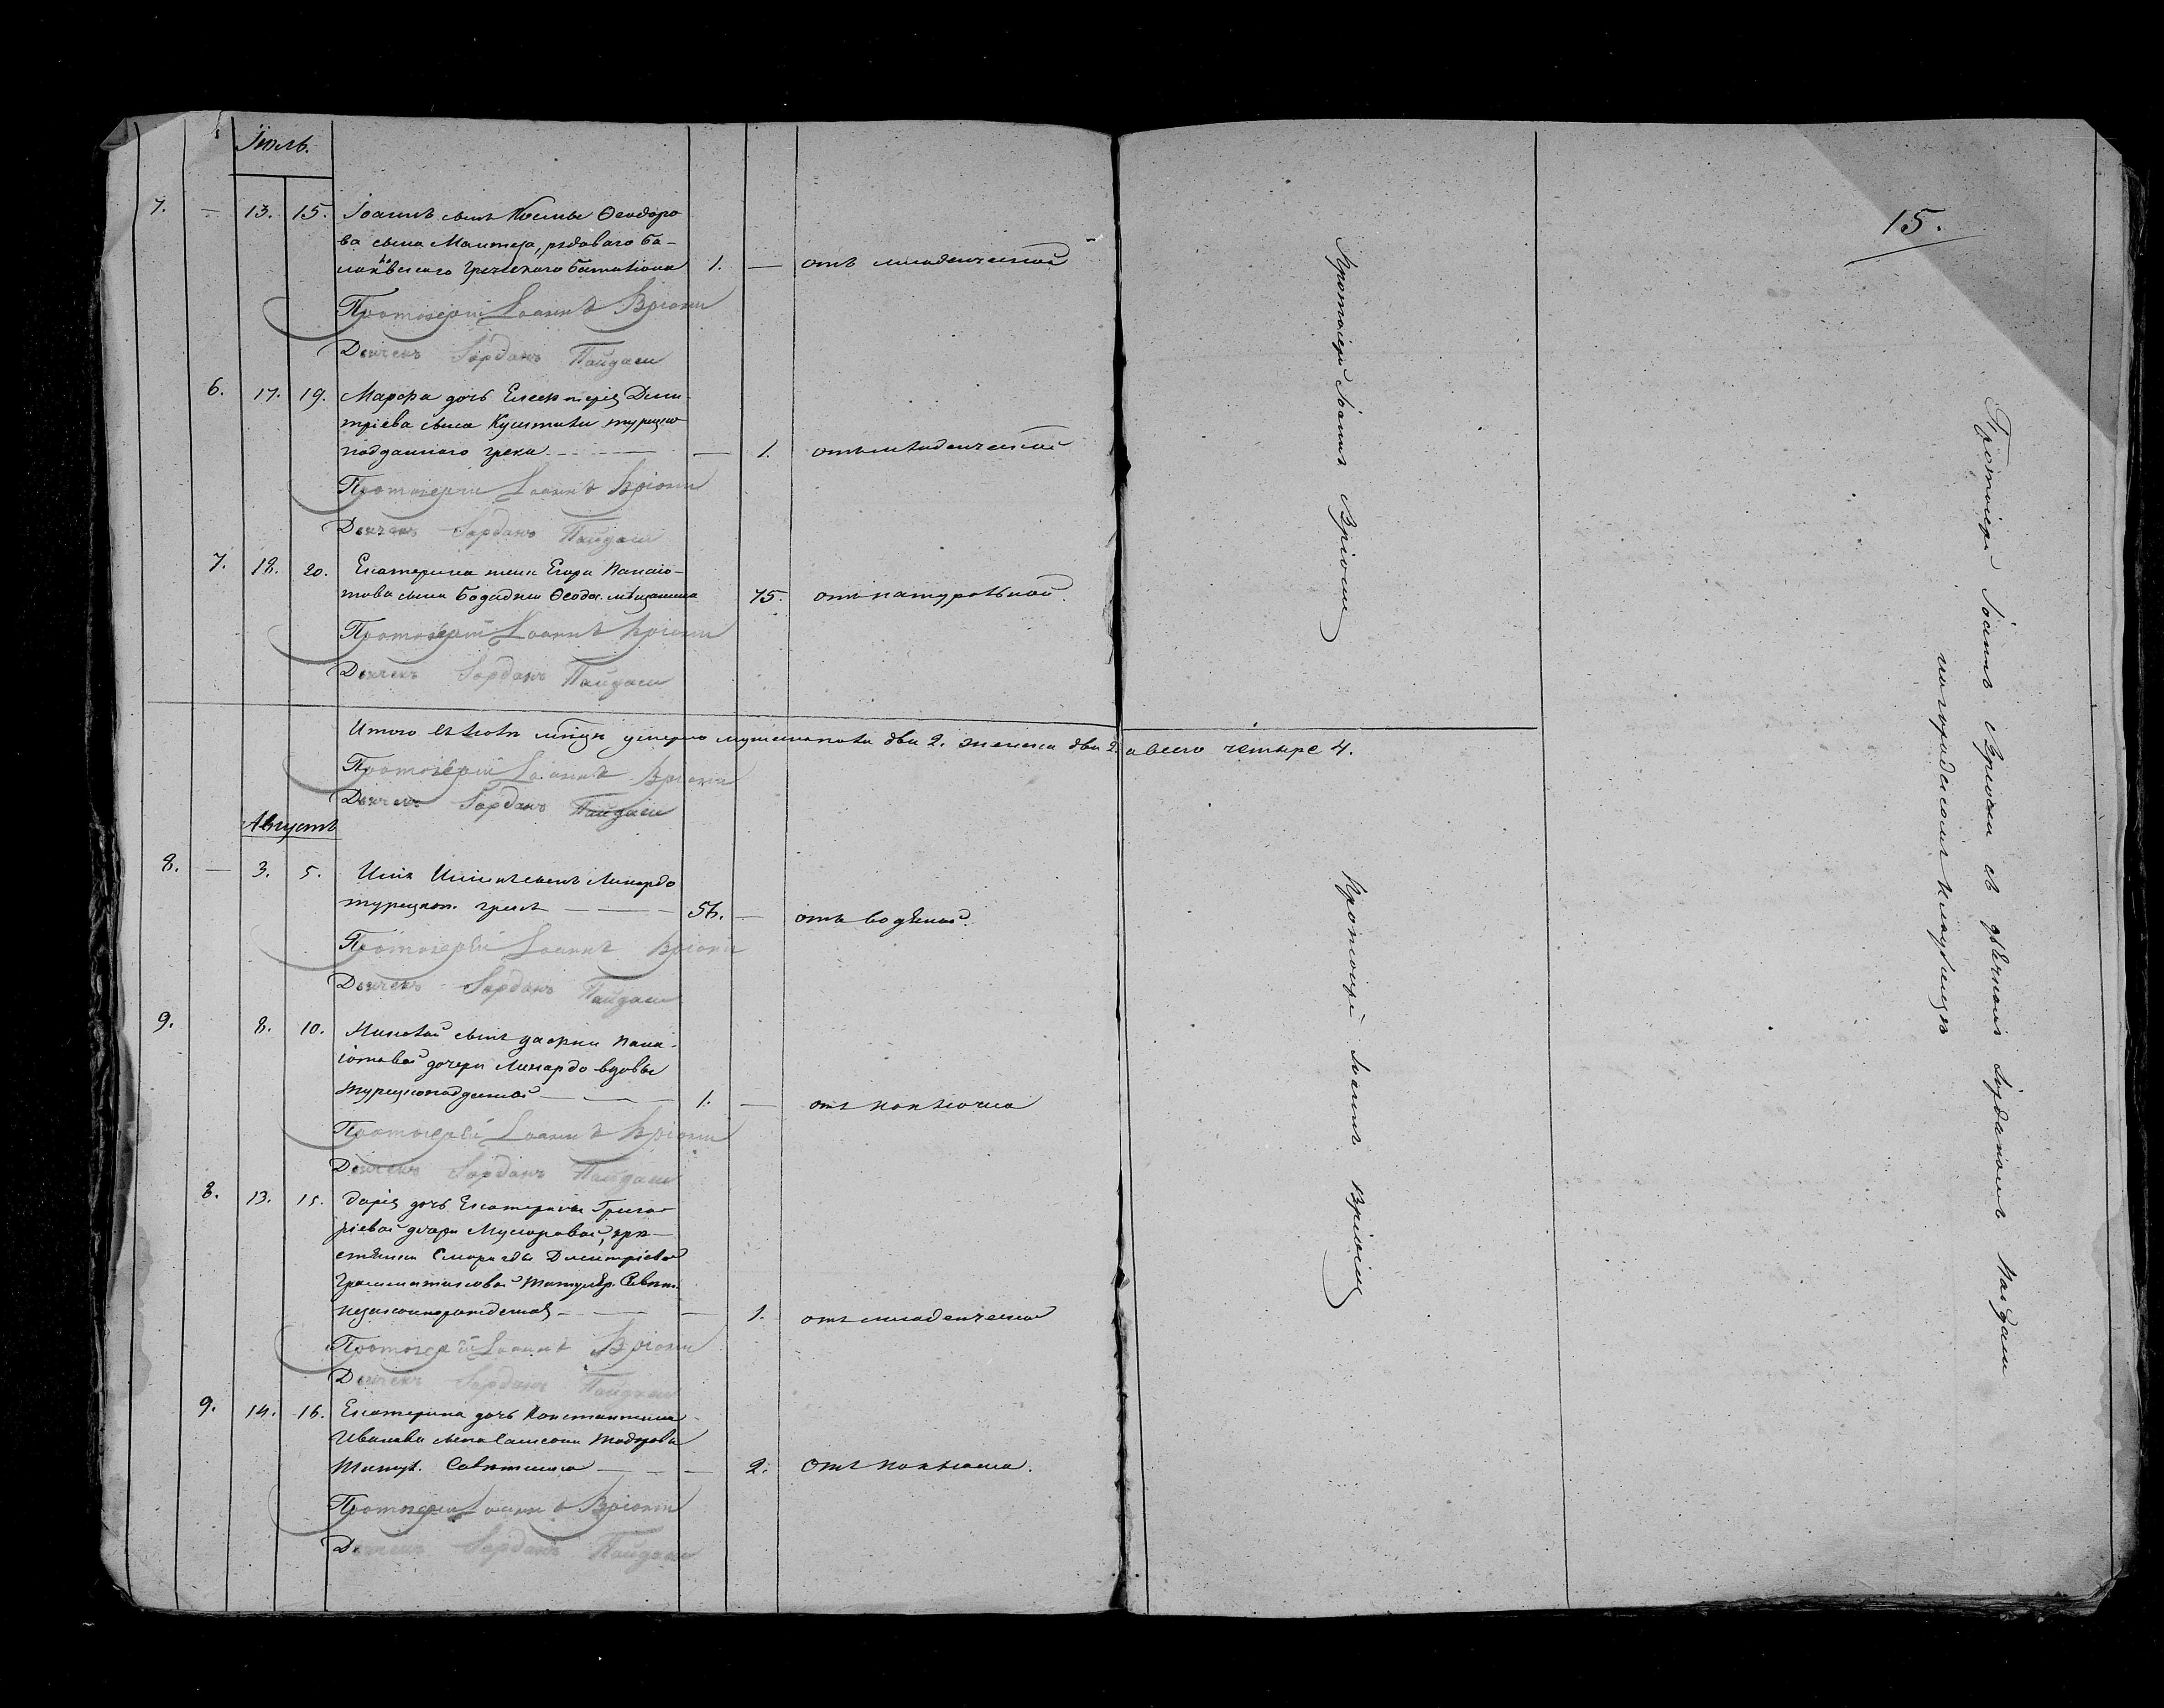 Іюль.
7. — 13. 15. Іоаннъ сынъ Космы Ѳеодоро
ва сына Мантеа, рядоваго Ба-
лаклавскаго Греческаго баталіона 1. — отъ младенческой
Протоіерей Іоаннъ Вріони
Дьячекъ Іорданъ Пайдаши
6. 17. 19. Марѳа дочь Елевтерія Дими
тріева сына турецко
подданнаго грека — — 1. отъ младенческой
Протоіерей Іоаннъ Вріони
Дьячекъ Іорданъ Пайдаши
7. 18. 20. Екатерина жена Егора Панаіо-
това сына Ѳеодос. мѣщанина 75. отъ натуральной
Протоіерей Іоаннъ Вріони
Дьячекъ Іорданъ Пайдаши
Итого въ іюлѣ мѣсяцѣ умерло мужеска пола два 2. женска два 2. а всего четыре 4.
Протоіерей Іоаннъ Вріони
Дьячекъ Іорданъ Пайдаши
Августъ
8. — 3. 5. Илія сынъ Линардо
турецкоп. грекъ — 56. — отъ водяной.
Протоіерей Іоаннъ Вріони
Дьячекъ Іорданъ Пайдаши
9. 8. 10. Николай сынъ Дафни Пана-
іотовой дочери Линардо вдовы
турецкоподданной — 1. — отъ коклюша
Протоіерей Іоаннъ Вріони
Дьячекъ Іорданъ Пайдаши
8. 13. 15. Дарія дочь Екатерины Григо-
ріевой дочери кре-
стьянки Смарагды Димитріевой
Грамматиковой Титуляр. Совѣтн.
незаконнорожденная — — 1. отъ младенческой
Протоіерей Іоаннъ Вріони
Дьячекъ Іорданъ Пайдаши
9. 14. 16. Екатерина дочь Константина
Иванова сына
Титул. Совѣтника — — 2. отъ коклюша.
Протоіерей Іоаннъ Вріони
Дьячекъ Іорданъ Пайдаши
Протоіерей Іоаннъ Вріони
Протоіерей Іоаннъ Вріони
15.
Протоіерей Іоаннъ Вріони съ дьячкомъ Іорданомъ Пайдаши
на городскомъ кладбищѣ